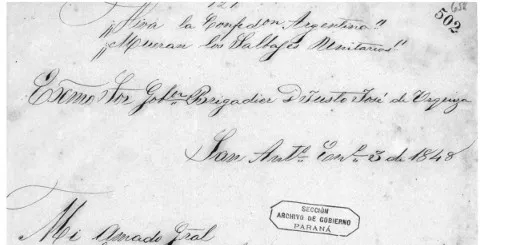 121
638
502
"¡Viva la Confedon Argentina!"
"¡Mueran los Salbajes Unitarios"
Exmo Sor Gobor Brigadier D Justo José de Urquiza
San Anto Eno 3 de 1848
SECCIÓN
ARCHIVO DE GOBIERNO
PARANÁ
Mi amado Gral